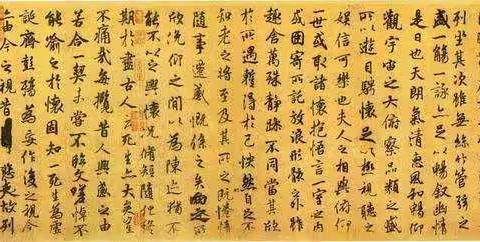 列坐其次雖無絲竹管弦之
盛一觴一詠亦足以暢敘幽情
是日也天朗氣清惠風和暢仰
觀宇宙之大俯察品類之盛
所以遊目騁懷足以極視聽之
娛信可樂也夫人之相與俯仰
一世或取諸懷抱悟言一室之內
或因寄所託放浪形骸之外雖
趣舍萬殊靜躁不同當其欣
於所遇暫得於己怏然自足不
知老之將至及其所之既惓情
隨事遷感慨係之矣向之所
欣俛仰之間以為陳迹猶不
能不以之興懷況脩短隨化終
期於盡古人云死生亦大矣豈
不痛哉每攬昔人興感之由
若合一契未嘗不臨文嗟悼不
能喻之於懷固知一死生為虛
誕齊彭殤為妄作後之視今
由今之視昔夫故列